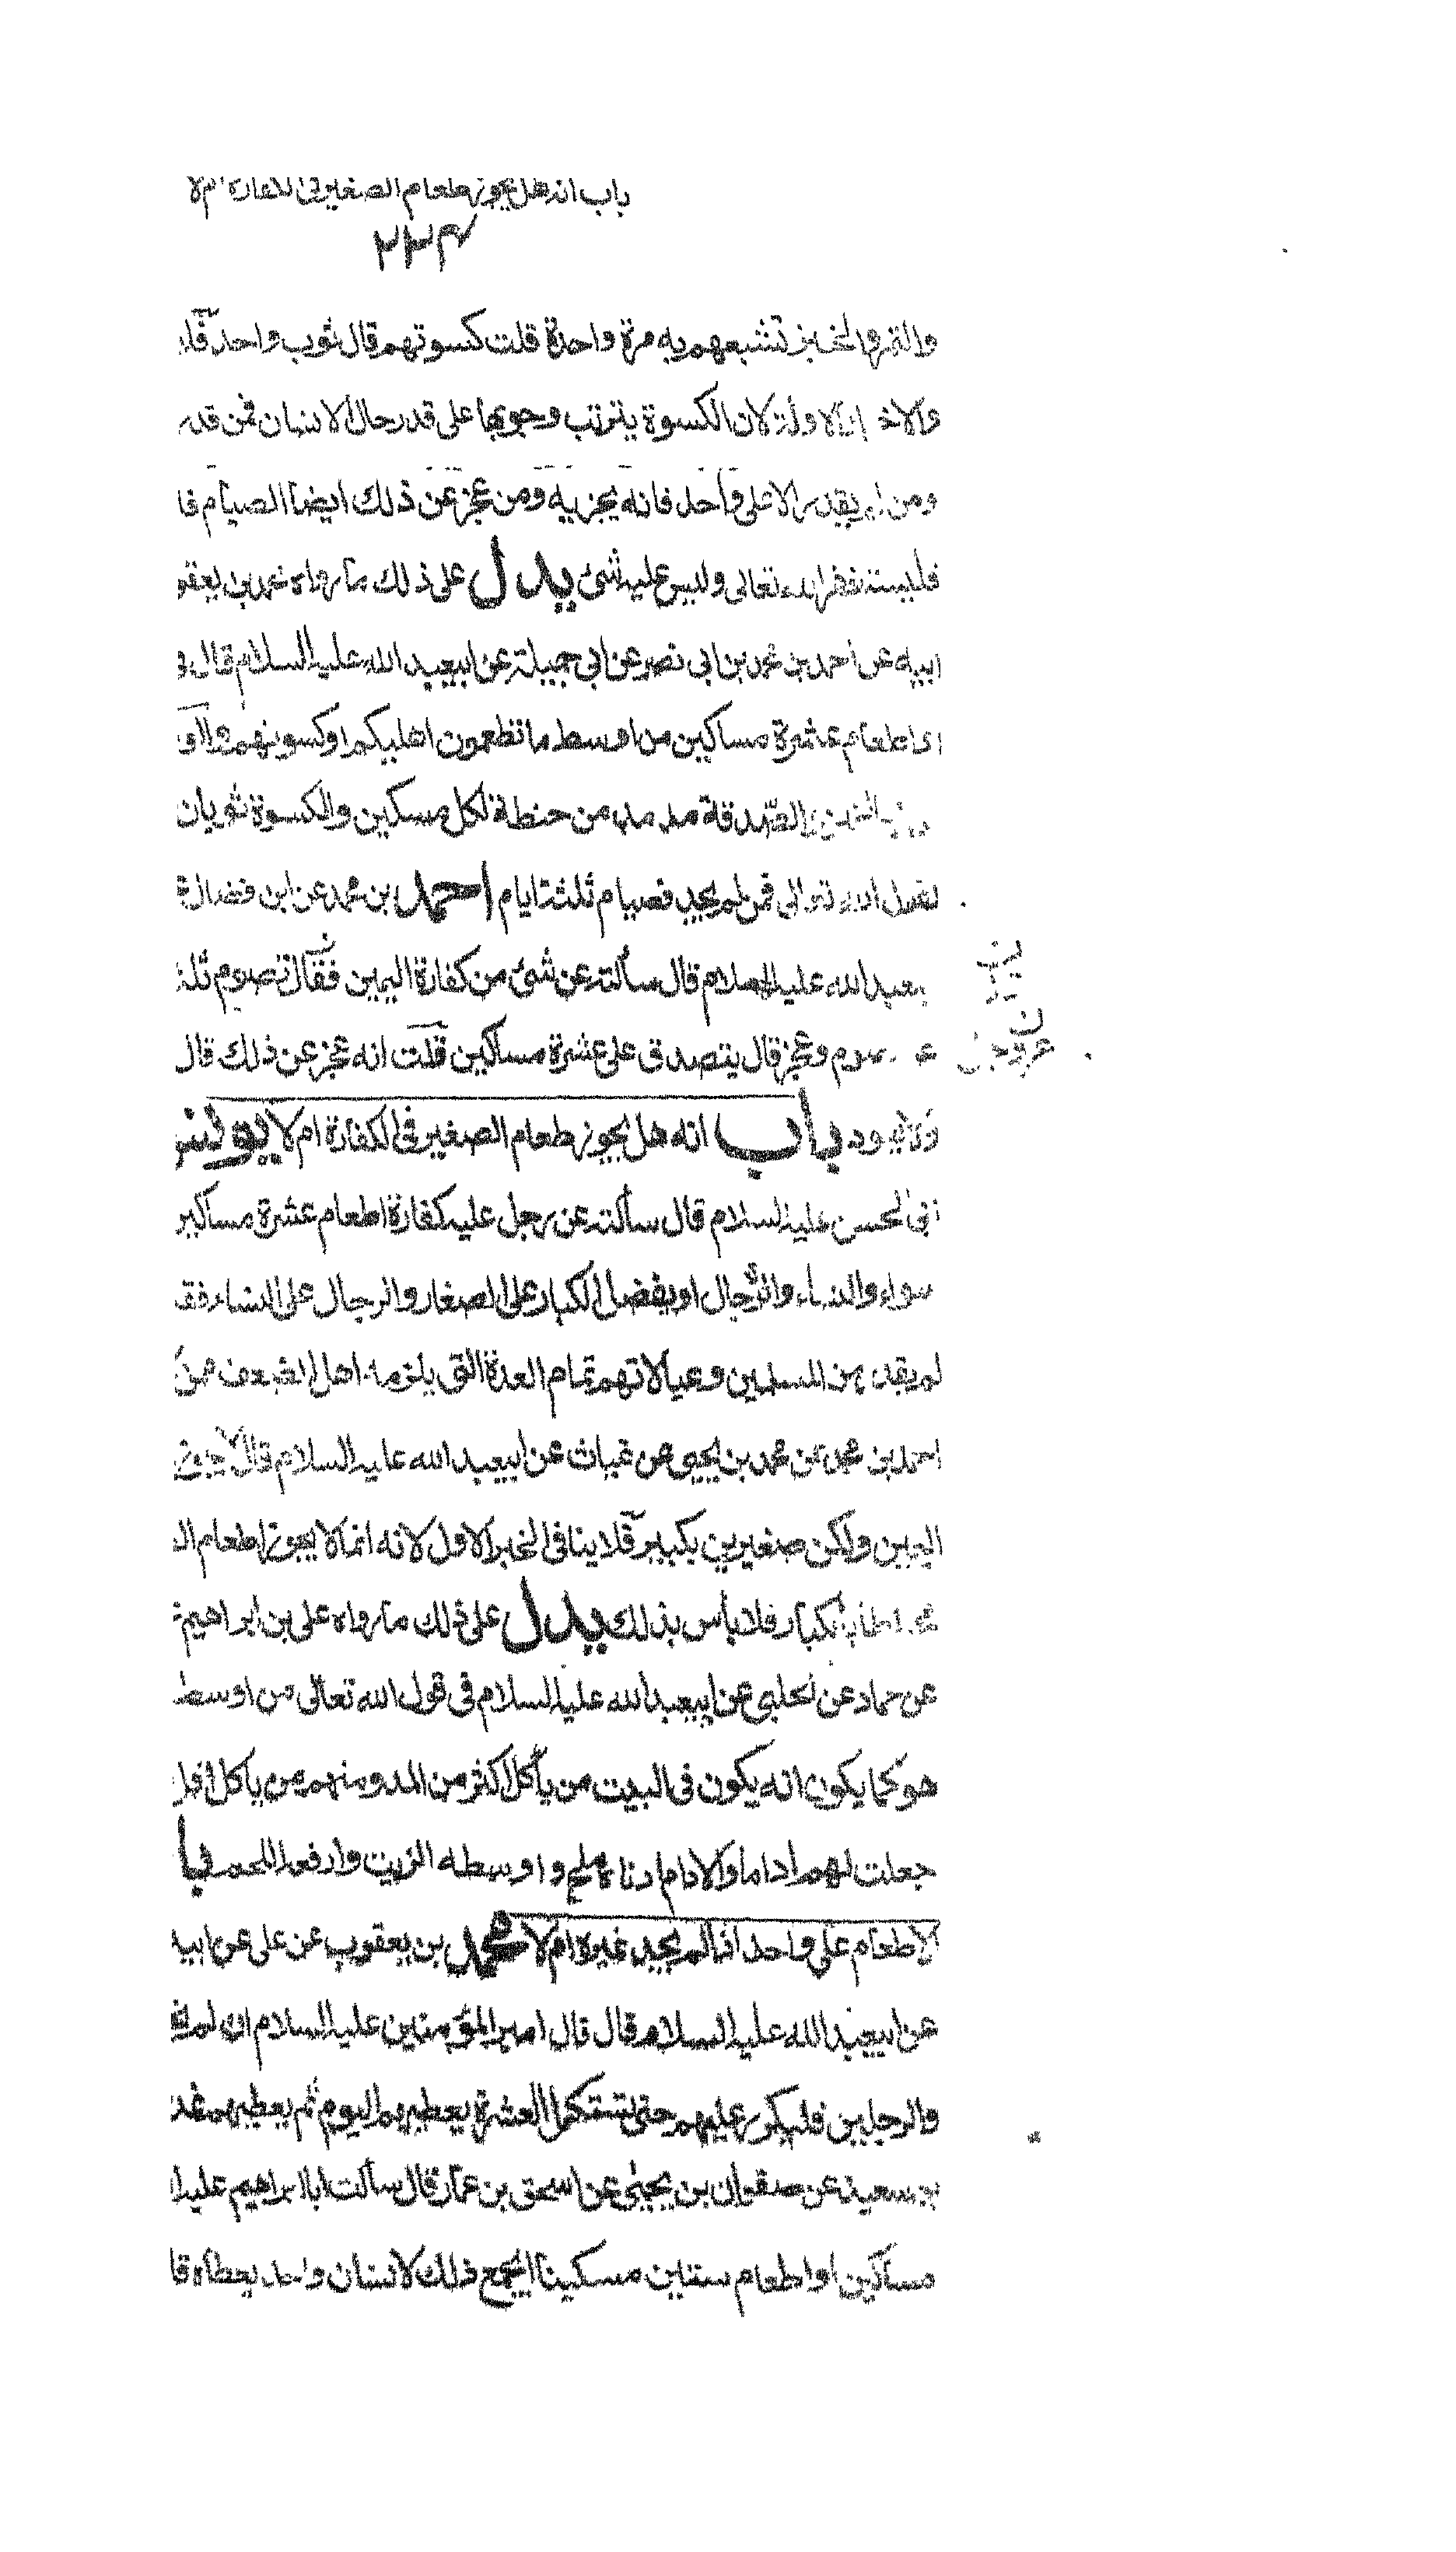 باب انه هل يجوز طعام الصغير في الكفارة ام لا
والتمر والخبز تشبعهم به مرة واحدة قلت كسوتهم قال ثوب واحد فلا
لان الكسوة يترتب وجوبها على قدر حال الانسان فمن قدر
ومن لم يقدر الا على واحد فانه يجزيه ومن عجز عن ذلك ايضا الصيام فا
فليستغفر الله تعالى وليس عليه شئ يدل على ذلك ما رواه محمد بن يعقو
ابيه عن احمد بن محمد بن ابي نصر عن ابي جميلة عن ابيعبد الله عليه السلام قال
اطعام عشرة مساكين من اوسط ما تطعمون اهليكم او كسوتهم والاو
الصدقة مد مد من حنطة لكل مسكين والكسوة ثوبان
لقول الله تعالى فمن لم يجد فصيام ثلثة ايام احمد بن محمد عن ابن فضال
بعبد الله عليه السلام قال سألته عن شئ من كفارة اليمين فقال تصوم ثلث
وعجز قال يتصدق على عشرة مساكين قلت انه عجز عن ذلك قال
عز وجل
باب انه هل يجوز طعام الصغير في الكفارة ام لا يونس
ابي الحسن عليه السلام قال سألته عن رجل عليه كفارة اطعام عشرة مساكين
سواء والنساء والرجال او يفضل الكبار على الصغار والرجال على النساء فق
لم يقدر من المسلمين وعيالاتهم تمام العدة التى يلزمه اهل الضعف ممن
احمد بن محمد عن محمد بن يحيى عن غياث عن ابيعبد الله عليه السلام قال لا يجزئ
اليمين ولكن صغيرين بكبير فلا ينافى الخبر الاول لانه انما لا يجوز اطعام ال
فلا بأس بذلك يدل على ذلك ما رواه على بن ابراهيم
عن حماد عن الحلبي عن ابيعبد الله عليه السلام في قول الله تعالى من اوسط
هو كما يكون انه يكون في البيت من يأكل اكثر من المد ومنهم من ياكل اقل
جعلت لهم اداما والادام ادناه ملح واوسطه الزيت وارفعه اللحم با
الاطعام على واحد اذا لم يجد غيره ام لا محمد بن يعقوب عن على عن ابيه
عن ابيعبد الله عليه السلام قال قال امير المؤمنين عليه السلام ان لم
والرجلين فليكرر عليهم حتى تستكمل العشرة يعطيهم اليوم ثم يعطيهم غد
سعيد عن صفوان بن يحيى عن اسحق بن عمار قال سألت ابا ابراهيم عليه ا
مساكين او اطعام ستين مسكينا ايجمع ذلك لانسان واحد يعطاه قا